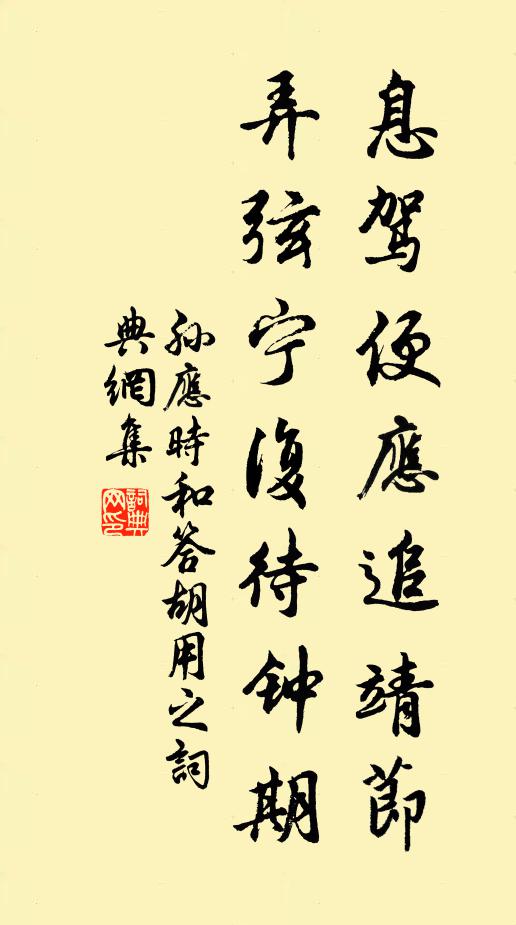 息駕便應追靖節
弄弦宁復待钟期
孙應時和答胡用之詞
典網集
詞典网印